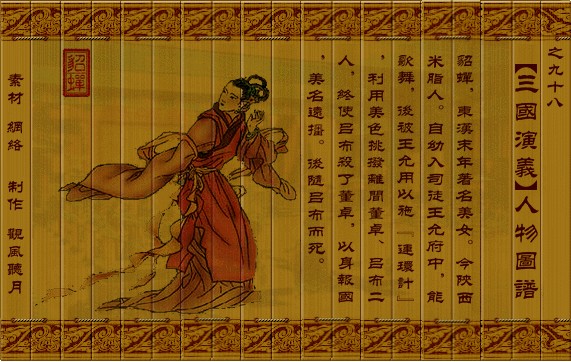 之九十八
【三國演義】人物圖譜
貂蟬，東漢末年著名美女。今陝西
米脂人。自幼入司徒王允府中，能
歌舞，後被王允用以施『連環計』
，利用美色挑撥離間董卓、呂布二
人，終使呂布殺了董卓，以身報國
，美名遠播。後隨呂布而死。
貂蟬
素材 網絡 制作 觀風聽月